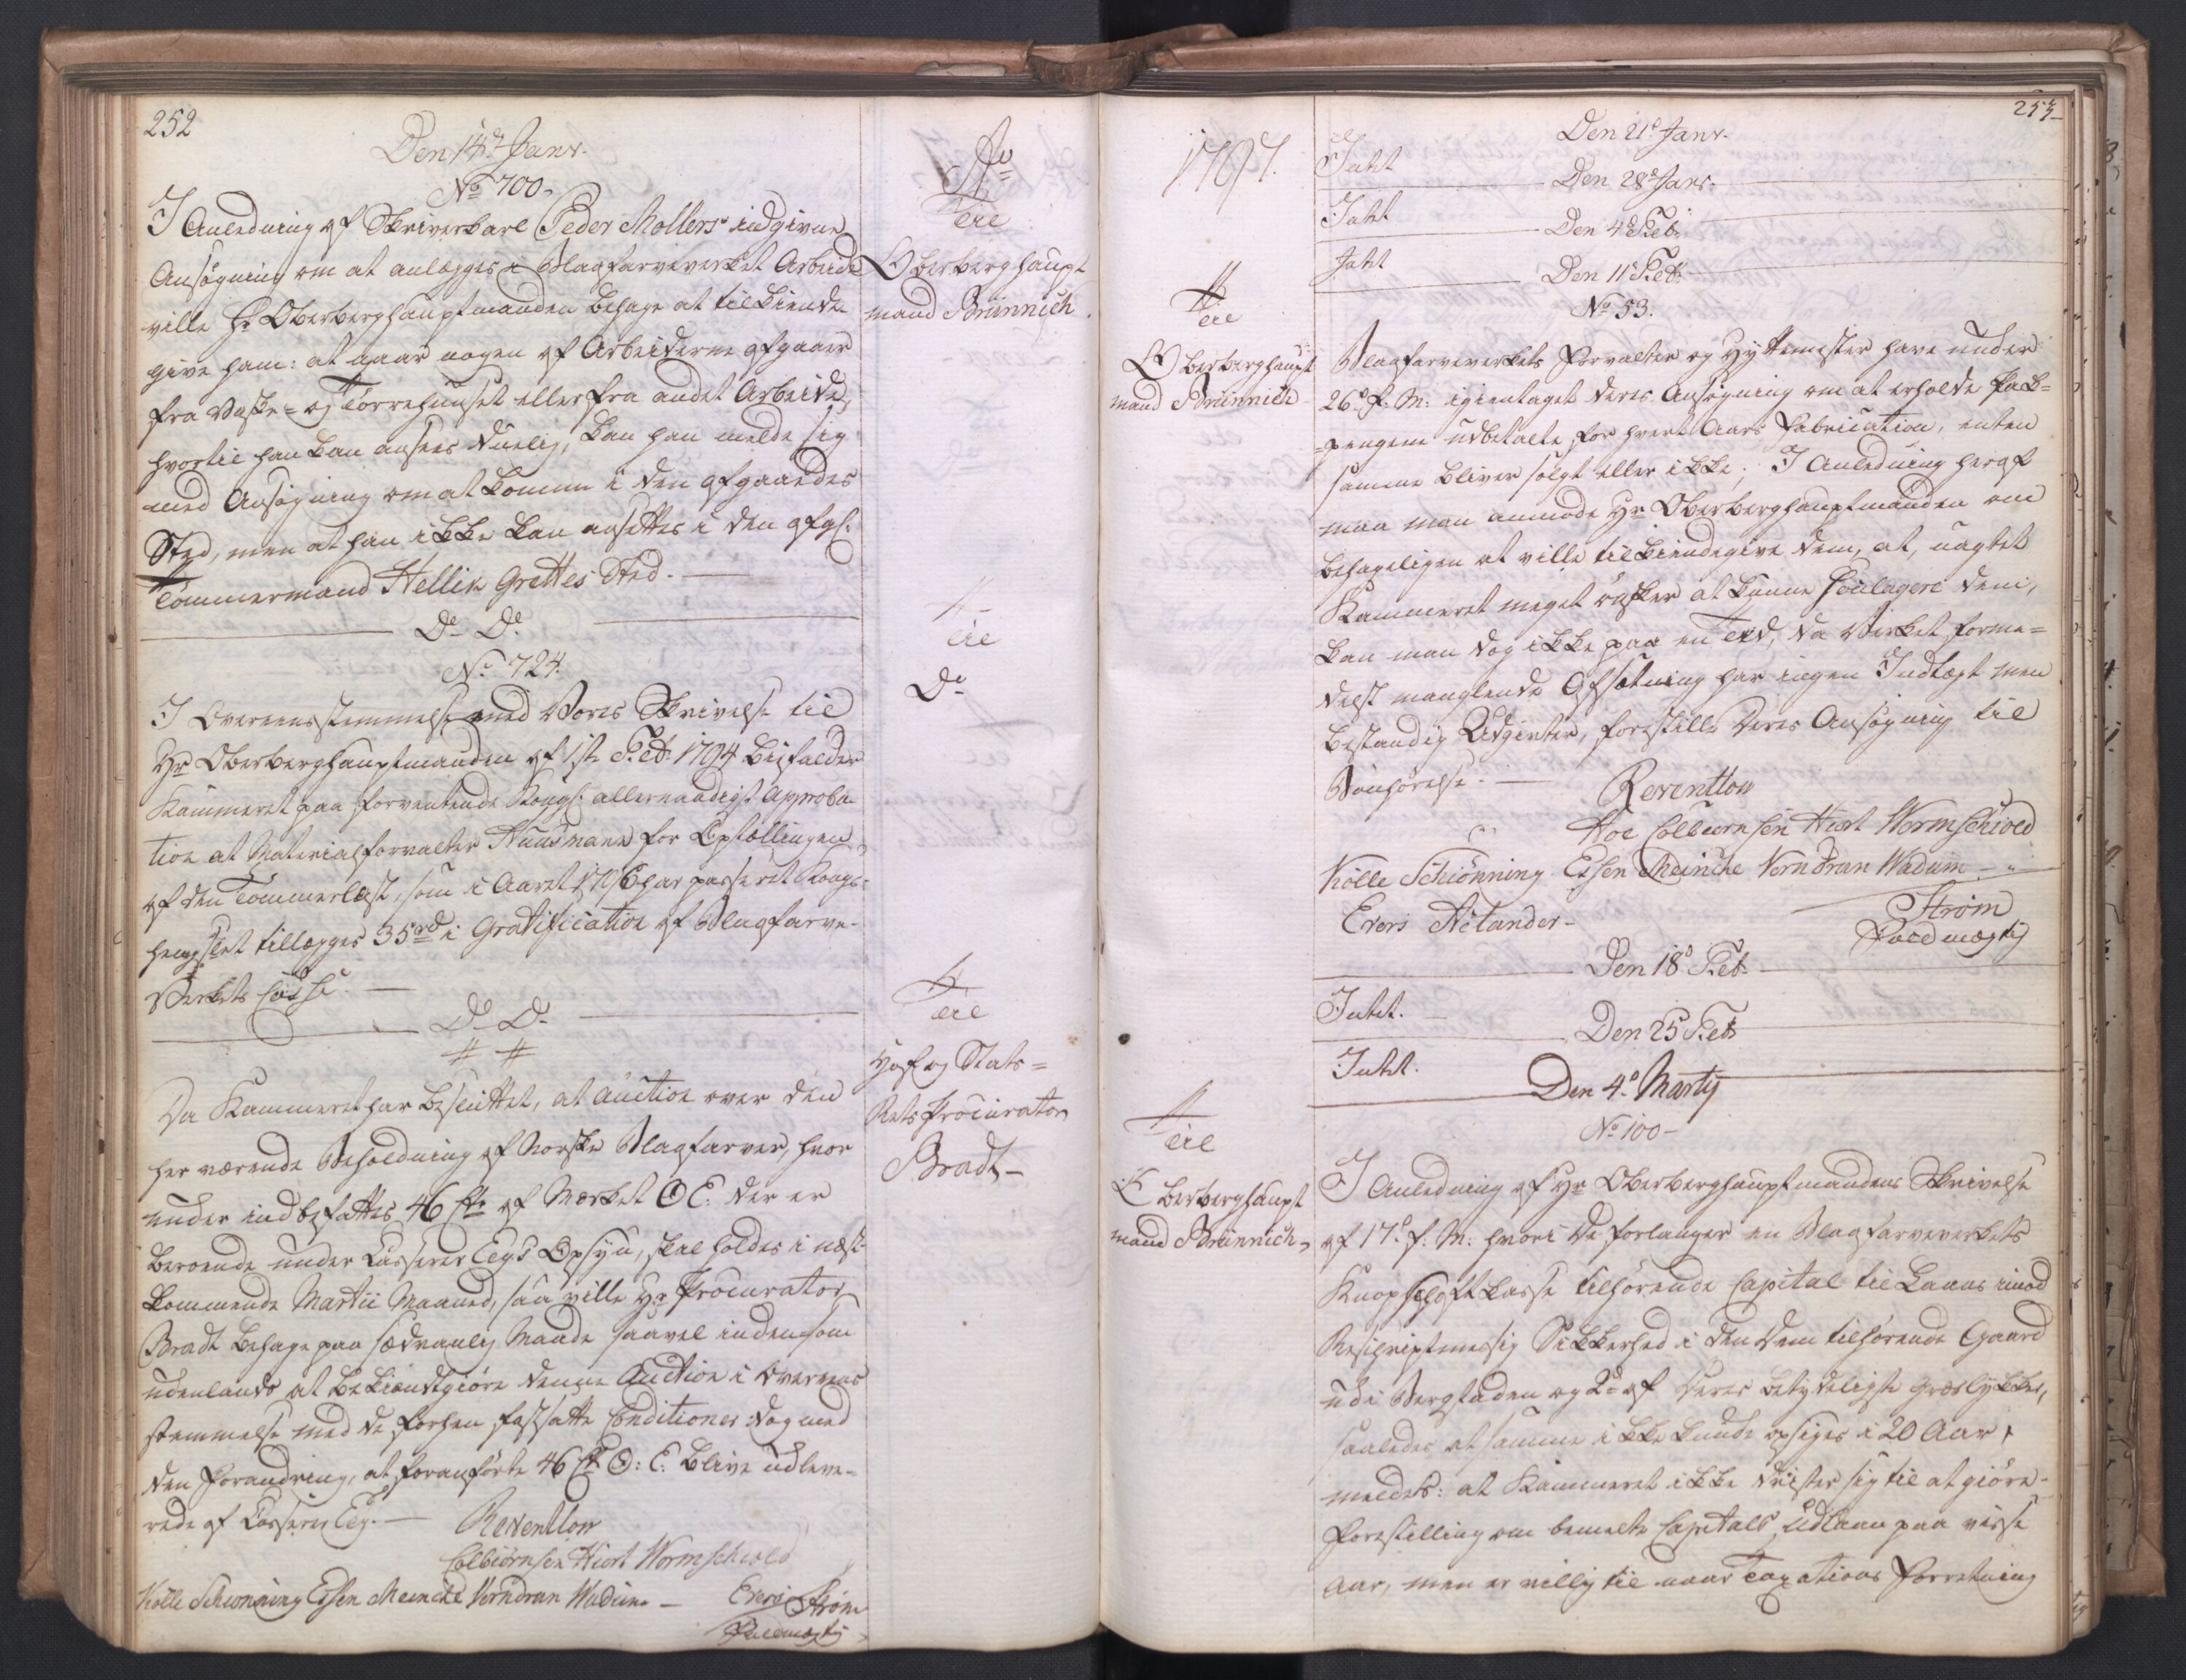 252
Den 14de Janv.
No 700.
I Anledning af Skriverkarl Peder Møllers indgivne
Ansøgning om at anlægges i Blaafarveverket Arbeide
ville Hr Oberberghauptmanden behage at tilkiende
give ham: at naar nogen af Arbeiderne afgaaer
fra Vaske- og Tørrehuuset eller fra andet Arbeide,
hvortil han kan ansees duelig, kan han melde sig
med Ansøgning om at komme i den afgaaendes
Sted, men at han ikke kan ansettes i den afg:
Tømmermand Hellik Grettes Sted. —
Do Do
No 724.
I Overeensstemmelse med Vores Skrivelse til
Hr Oberberghauptmanden af 1ste Feb. 1794 bifalder
Kammeret paa forventende Kongl: allernaadigst Approba-
tion at Materialforvalter Huusmann for Optællingen
af den Tømmerlast, som i Aaret 1796 har passeret Konge-
hengslet tillægges 35 rd i Gratification af Blaafarve-
Verkets Casse. —
Do Do
# #
Da Kammeret har besluttet, at Auction over den
her værende Beholdning af Norske Blaafarver, hvor
under indbefattes 46 Ctr af Mærket O C: der er
beroende under Casserer Eegs Opsyn, skal holdes i næst-
kommende Martii Maaned, saa ville Hr Procurator
Bradt behage paa sædvanlig Maade saavel inden som
udenlands at bekiendtgiøre denne Auction i Overeens
stemmelse med de forhen fastsatte Conditioner: dog med
den Forandring, at foranførte 46 Ctr O: C: blive udleve-
rede af Casserer Eeg. — Reventlow
Colbiørnsen Hiort Wormschiold
Kölle Schiönning Essen Meincke Vorndran Wadum — Evers Strøm
Fuldmægtig
Ao
Til
Oberberghaupt
mand Brünnich.
Til
Do
Til
Hof og Stats-
Rets Procurator
Bradt —
1797.
Til
Oberberghaupt
mand Brünnich
Til
Oberberghaupt
mand Brünnich
253
Den 21de Janv.
Intet
Den 28de Janv.
Intet
Den 4de Feb.
Intet
Den 11te Feb.
No 53.
Blaafarveverkets Forvalter og Hyttemester have under
26de f: M: igientaget deres Ansøgning om at erholde Pak-
-pengene udbetalte for hvert Aars Fabrication, enten
samme bliver solgt eller ikke; I Anledning heraf
maa man anmode Hr Oberberghauptmanden om
behageligen at ville tilkiendegive dem, at, uagtet
Kammeret meget ønsker at kunne soulagere dem,
kan man dog ikke paa en Tid, da Verket forme-
delst manglende Afsætning har ingen Indtægt men
bestandig Udgivter, forestille deres Ansøgning til
Bønhørelse. — Reventlow
Hoe Colbiørnsen Hiort Wormschiold
Kölle Schiönning Essen Meincke Vorndran Wadum —
Evers Aélander — Strøm
Fuldmægtig
Den 18de Feb.
Intet.
Den 25 Feb.
Intet.
Den 4de Martij
No 100 —
I Anledning af Hr Oberberghauptmandens Skrivelse
af 17de f: M: hvori De forlanger en Blaafarveverkets
Knapskaftkasse tilhørende Capital til Laans imod
Rescriptmessig Sikkerhed i den Dem tilhørende Gaard
udi Bergstaden og 2de af Deres betydeligste Græslykker,
saaledes at samme ikke kunde opsiges i 20 Aar,
meldes: at Kammeret ikke drister sig til at giøre
Forestilling om bemelte Capitals Udlaan paa visse
Aar, men er villig til naar Taxations Forretning